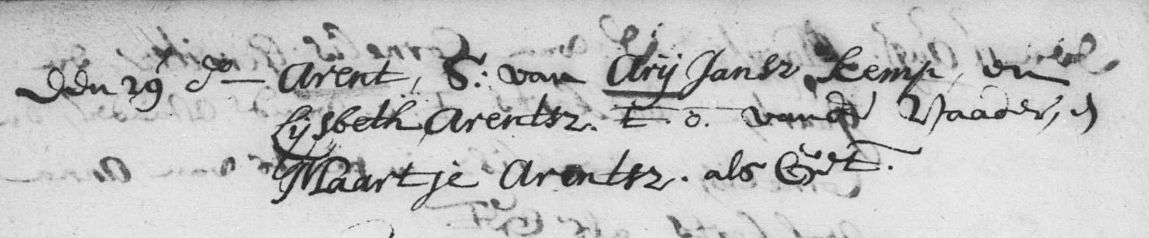 Den 29 do — Arent, S: van Arij Jansz Kemp, en
Lijsbeth Arentsz. t. o. vande Vaader, en
Maartje Arentsz. als Get.